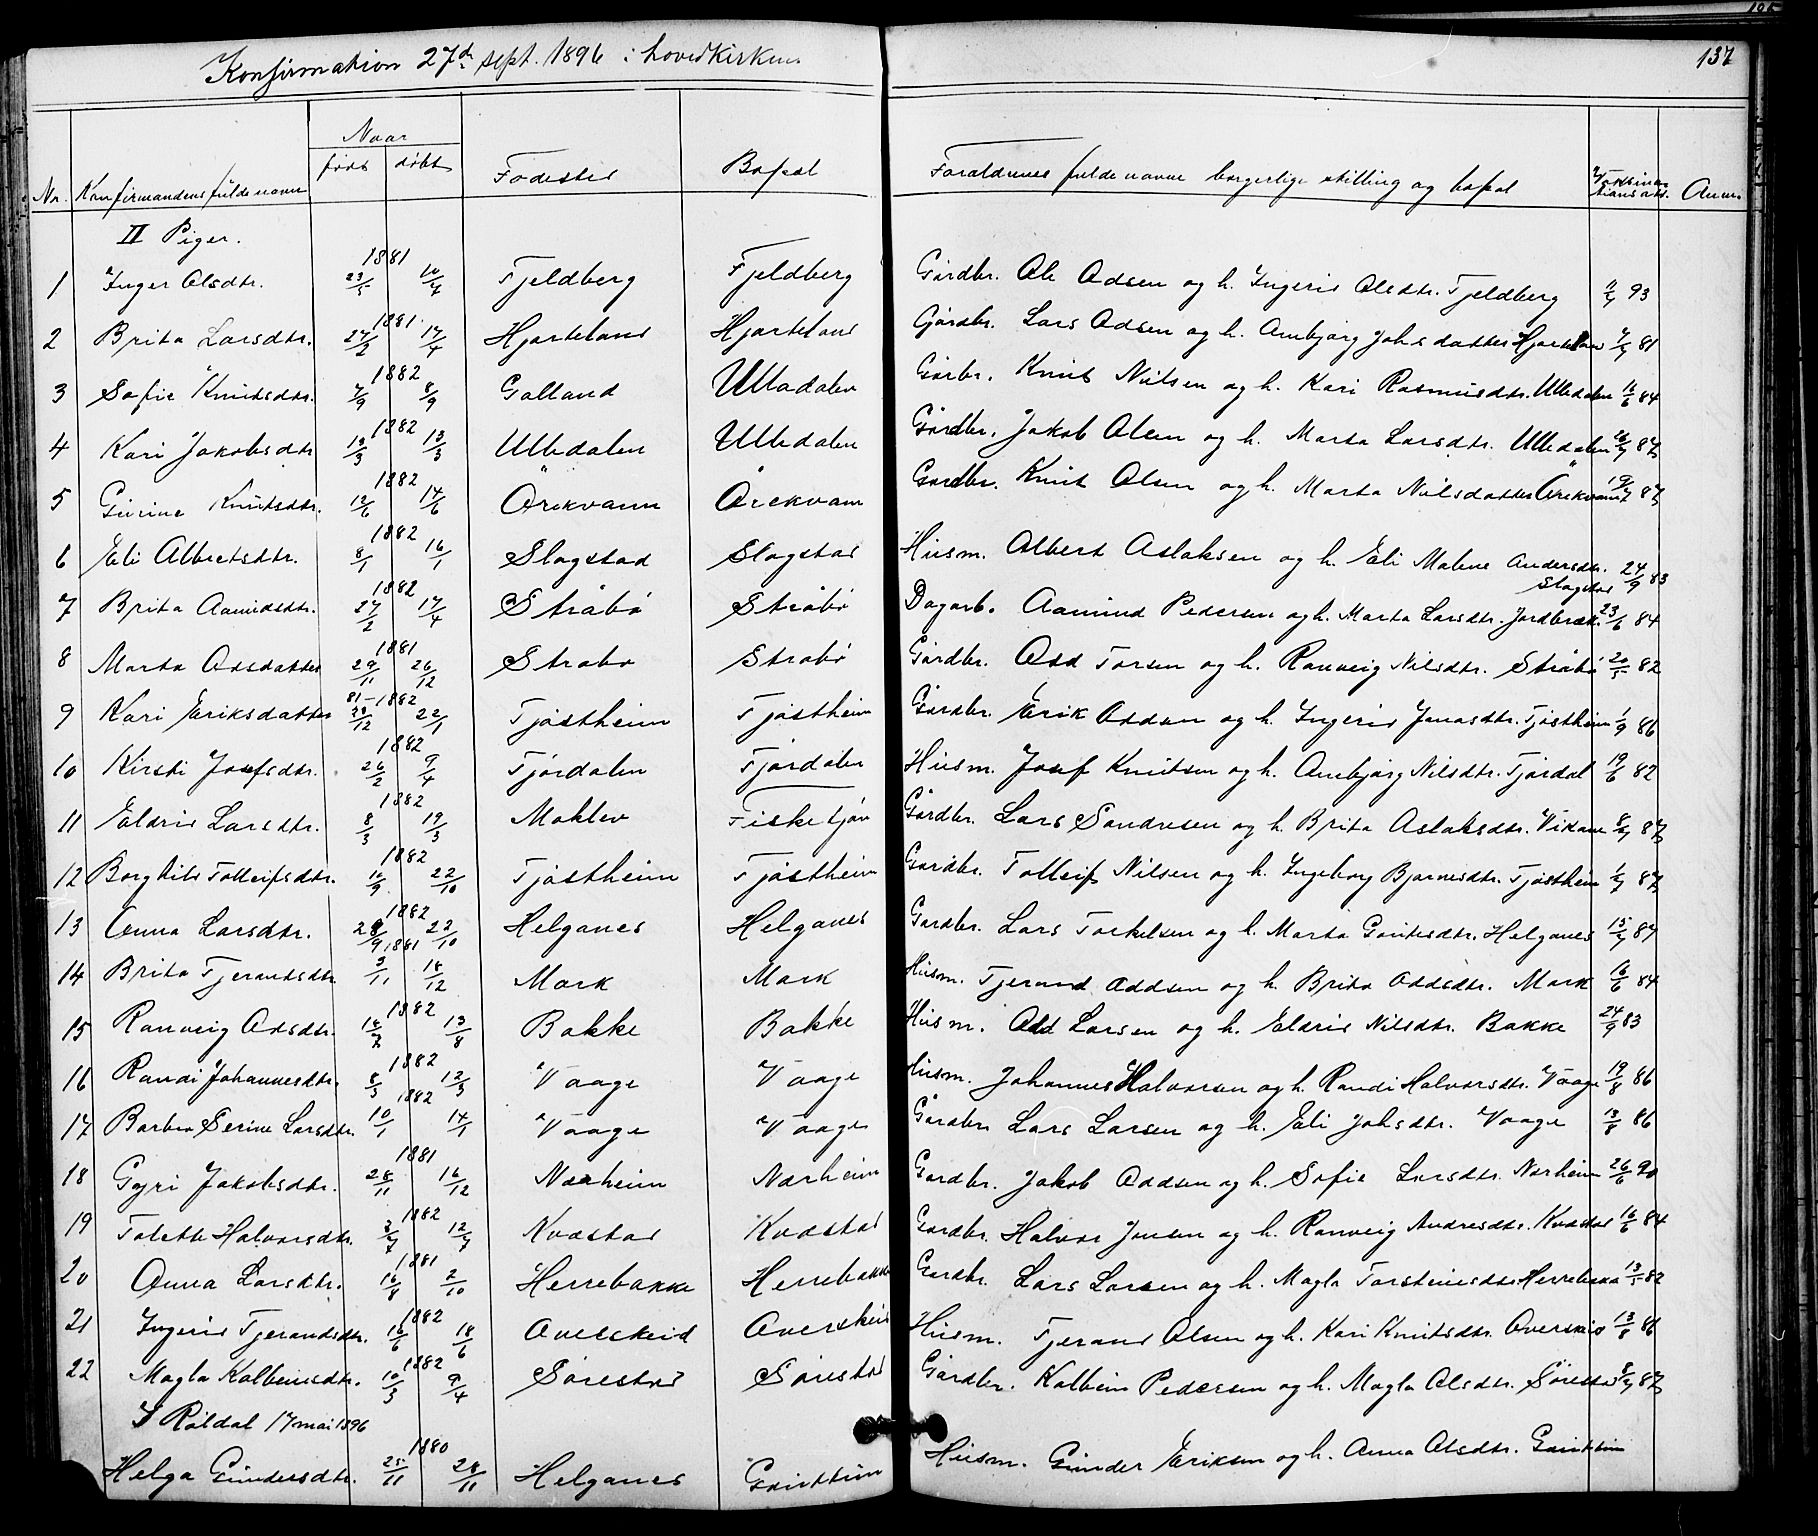 137
Konfirmation 27de sept. 1896 i hovedkirken
Naar
Nr. Konfirmandens fulde navn født døbt Fødested Bopæl Forældrenes fulde navne borgerlige stilling og bopæl Vaksinationsatt. Anm.
II Piger.
1 Inger Olsdtr. 1881 23/5 10/7 Fjeldberg Fjeldberg Gårdbr. Ole Odsen og h. Ingerid Olsdtr. Fjeldberg 93
2 Brita Larsdtr. 1881 27/2 17/4 Hjorteland Hjorteland Gjårdbr. Lars Odsen og h. Anbjørg Johsdatter Hjorteland 81
3 Sofie Knutsdtr. 1882 7/9 8/9 Golland Ulladalen Gårbr. Knut Nilsen og h. Kari Rasmusdtr. Ulledalen 16/6 84
4 Kari Jakobsdtr 1882 13/3 13/3 Ulledalen Ulledalen Gårdbr. Jakob Olsen og h. Marta Larsdtr. Ulledalen 26/7 87
5 Gurine Knutsdtr. 1882 12/6 14/6 Örekvam Örekvam Gårdbr. Knut Olsen og h. Marta Nilsdatter Örekvam 87
6 Eli Albretsdtr. 1882 8/1 16/1 Slagstad Slagstad Husm. Albert Aslaksen og h. Eli Malene Andersdtr. Slagstad 24/9 83
7 Brita Aamundsdtr. 1882 27/2 17/4 Stråbø Stråbø Dagarb. Aamund Pedersen og h. Marta Larsdtr. Jordbræk. 23/6 84
8 Marta Odsdatter 1881 29/11 26/12 Strabø Strabø Gårdbr. Odd Torsen og h. Ranveig Nilsdtr. Stråbø 20/5 82
9 Kari Eriksdatter 81-1882 28/12 22/1 Tjøstheim Tjøstheim Gårdbr. Erik Oddsen og h. Ingerid Jonasdtr. Tjøstheim 1/9 86
10 Kirsti Josefsdtr. 1882 26/2 9/4 Fjørdalen Fjørdalen Husm. Josef Knutsen og h. Anbjørg Nilsdtr. Fjørdal 19/6 82
11 Eldrid Larsdtr. 1882 8/3 19/3 Moklev Fisketjøn Gårdbr. Lars Sondresen og h. Brita Aslaksdtr. Vikane 8/7 87
12 Borghild Tolleifsdtr. 1882 10/9 22/10 Tjøstheim Tjøstheim Gårdbr. Tolleif Nilsen og h. Ingeborg Bjarnesdtr. Tjøstheim 87
13 Anna Larsdtr. 1882 28/9 22/10 Helganes Helganes Gardbr. Lars Torkelsen og h. Marta Gautesdtr. Helganes 15/7 87
14 Brita Tjerandsdtr 1881 3/11 18/12 Mork Mork Husm. Tjerand Oddsen og h. Brita Oddsdtr. Mork 16/6 84
15 Ranveig Odsdtr. 1882 18/7 13/8 Bakke Bakke Husm. Odd Larsen og h. Eldrid Nilsdtr. Bakke 24/9 83
16 Randi Johannesdtr. 1882 8/3 12/3 Vaage Vaage Husm. Johannes Halvorsen og h. Randi Halvorsdtr. Vaage 19/8 86
17 Barbra Serine Larsdtr. 1882 10/1 14/1 Vaage Vaage Gårdbr. Lars Larsen og h. Eli Johsdtr. Vaage 13/8 86
18 Gyri Jakobsdtr. 1881 28/11 16/12 Nærheim Nærheim Gardbr. Jakob Oddsen og h. Sofie Larsdtr. Nærheim 26/6 90
19 Tolette Halvorsdtr. 1882 3/7 12/7 Kvæstad Kvæstad Gardbr. Halvor Jonsen og h. Ranveig Andresdtr. Kvæstad 16/6 84
20 Anna Larsdtr. 1881 16/8 2/10 Herrebakke Herrebakke Gardbr. Lars Larsen og h. Magla Torsteinsdtr Herrebakke 13/5 82
21 Ingerid Tjerandsdtr. 1882 16/6 18/6 Overskeid Overskeid Husm. Tjerand Olsen og h. Kari Knutsdtr. Overskeid 13/8 86
22 Magla Kolbeinsdtr. 1882 10/3 9/4 Sørestad Sørestad Gårdbr. Kolbein Pedersen og h. Magla Olsdtr. Sørestad 8/7 87
I Røldal 17 mai 1896
Helga Gundersdtr. 1880 25/11 28/11 Helganes Husm. Gunder Eriksen og h. Anna Olsdtr.